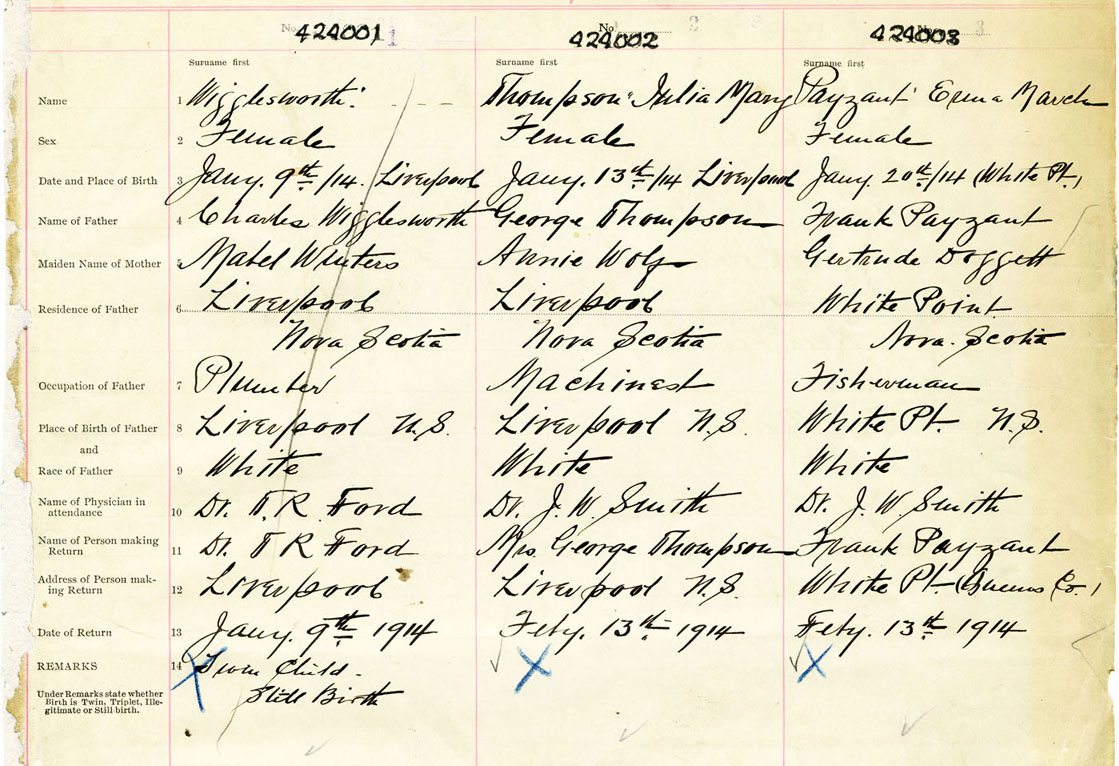 No. 424001 1 No. 424002 2 No. 424003 3
Surname first Surname first Surname first
Name 1 Wigglesworth. - - - Thompson Julia Mary Payzant Erma March
Sex 2 Female Female Female
Date and Place of Birth 3 Jany. 9th/14. Liverpool Jany. 13th/14 Liverpool Jany. 20th/14 (White Pt.)
Name of Father 4 Charles Wigglesworth George Thompson Frank Payzant
Maiden Name of Mother 5 Mabel Winters Annie Wolf Gertrude Doggett
Residence of Father 6 Liverpool Liverpool White Point
Nova Scotia Nova Scotia Nova. Scotia
Occupation of Father 7 Plumber Machinest Fisherman
Place of Birth of Father 8 Liverpool N.S. Liverpool N.S. White Pt. N.S.
and
Race of Father 9 White White White
Name of Physician in
attendance 10 Dr. T. R. Ford Dr. J. W. Smith Dr. J. W. Smith
Name of Person making
Return 11 Dr. T R Ford Mrs. George Thompson Frank Payzant
Address of Person mak-
ing Return 12 Liverpool Liverpool N.S. White Pt. (Queens Co.)
Date of Return 13 Jany. 9th 1914 Feby. 13th 1914 Feby. 13th 1914
REMARKS 14 Twin Child.
Under Remarks state whether
Birth is Twin, Triplet, Ille-
gitimate or Still birth. Still Birth